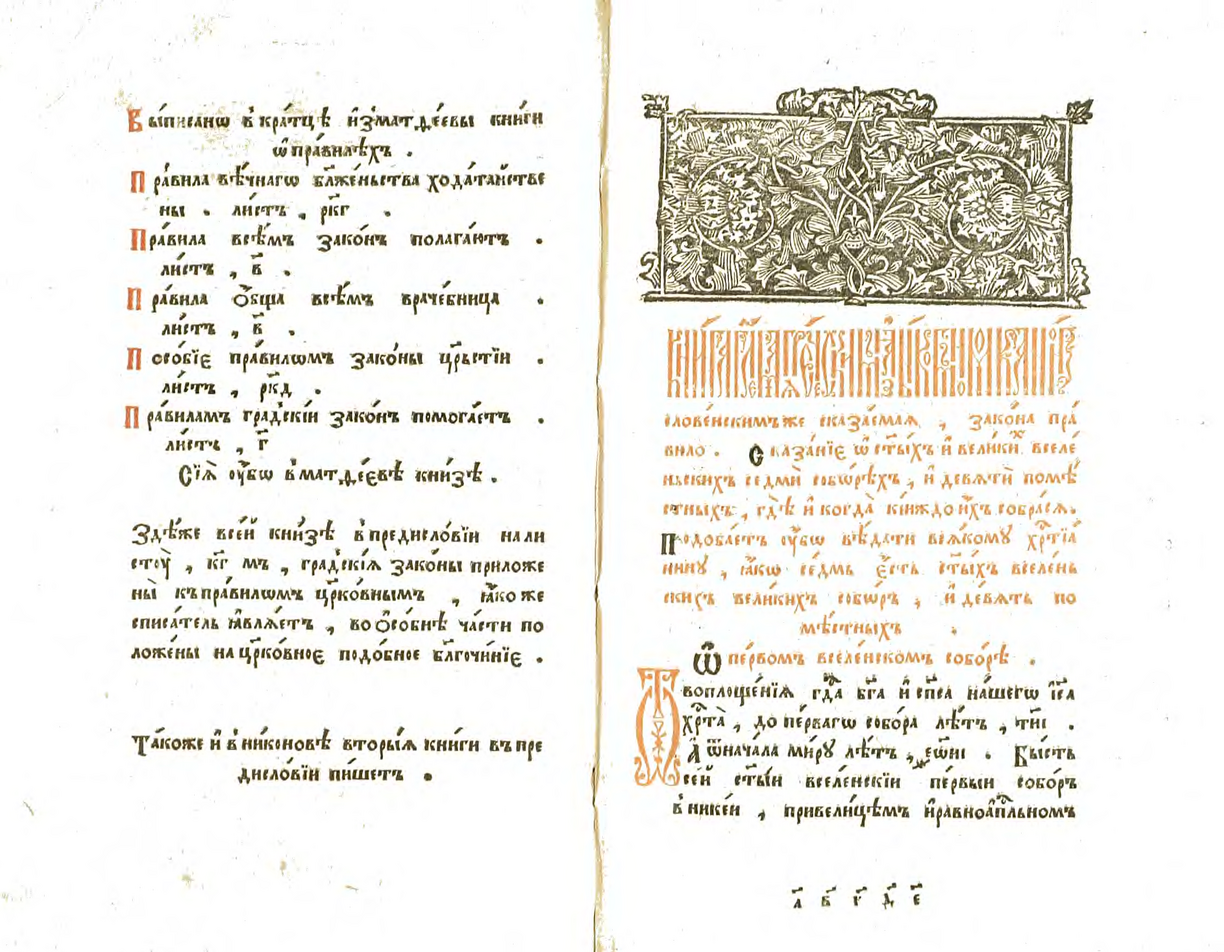 Выписанѡ в̾кра́тцѣ и҆зматѳе́евы кни́ги
ѡ҆пра́вилѣхъ .
Пра́вила вѣ́чнагѡ бл҃же́ньства хода́тайстве
ны . ли́стъ , рк҃г .
Пра́вила всѣ́мъ зако́нъ полага́ютъ .
ли́стъ , в҃ .
Пра́вила ѻ҆́бща всѣ́мъ враче́бница .
ли́стъ , в҃ .
Посо́бїе пра́вилѡмъ зако́ны цр҃ьстїи .
ли́стъ , рк҃д .
Пра́виламъ гра́дскїи зако́нъ помога́етъ .
ли́стъ , г҃
Сїѧ̀ ᲂу҆́бѡ в̾матѳе́евѣ кни́зѣ .
Здѣ́же все́й кни́зѣ в̾предисло́вїи на ли
стоу̀ , к҃г мъ , гра́дскїѧ зако́ны приложе
ны̀ къпра́вилѡмъ цр҃ко́внымъ , ꙗ҆́коже
списа́тель ꙗ҆влѧ́етъ , во ѻ҆со́бнѣ ча́сти по
ложе́ны на цр҃ко́вное подо́бное бл҃гочи́нїе .
Та́коже и҆ в̾ни́коновѣ вторы́ѧ кни́ги въпре
дисло́вїи пи́шетъ .
слове́нскимъже сказа́емаѧ , зако́на пра́
вило . Сказа́нїе ѡ҆ ст҃ы́хъ и҆ вели́киⷯ вселе́
ньскихъ седмѝ собо́рѣхъ , и҆ девѧтѝ помѣ́
стныхъ , гдѣ̀ и҆ когда̀ кі́иждо и҆́хъ собра́сѧ .
Подоба́етъ ᲂу҆́бѡ вѣ́дати всѧ́кому хрⷭ҇тїа
нину , ꙗ҆́кѡ се́дмь є҆́сть ст҃ы́хъ вселе́нь
скихъ вели́кихъ собѡ́ръ , и҆ де́вѧть по
мѣ́стныхъ .
Ѡ҆ пе́рвомъ вселе́нскомъ собо́рѣ .
Ѿ воплоще́нїѧ гдⷭ҇а бг҃а и҆ сп҃са на́шегѡ і҆с҃а
хрⷭ҇та̀ , до пе́рвагѡ собо́ра лѣ́тъ , ти҃і .
А҆ ѿнача́ла ми́ру лѣ́тъ , ҂єѡ҃иі . Бы́сть
се́й ст҃ы́и вселе́нскїи пе́рвыи собо́ръ
в̾нике́и , привели́цѣмъ и҆равноапⷭ҇льномъ
а҃ в҃ г҃ д҃ є҃